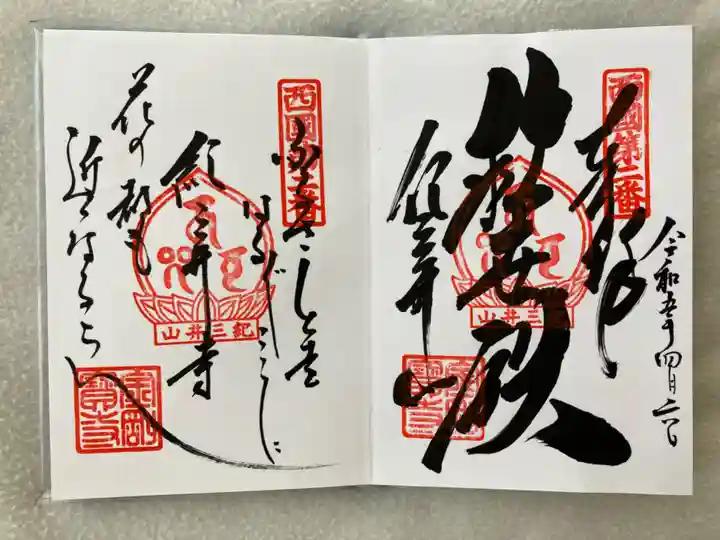 西國第二番
奉拝
令和五年四月
救世殿
紀三井山
山井三紀
金剛寶寺
西國第二番
ふるさとを
はるばるここに
紀三井寺
花の都も
近くなるらん
山井三紀
金剛寶寺